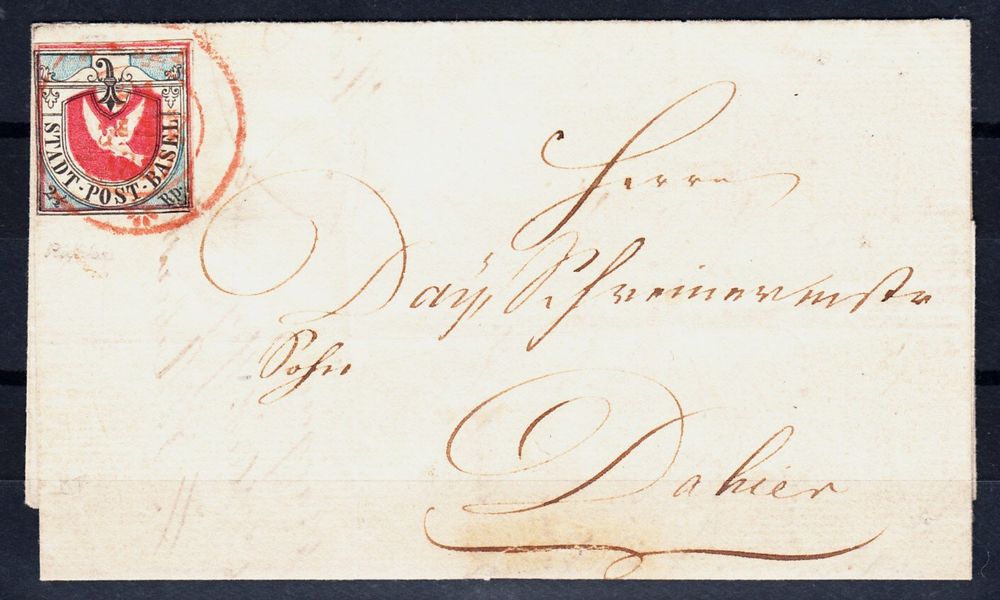 STADT-POST-BASEL
2½ Rp.
Herrn
Day, Schreinermstr
Sohn
Dahier